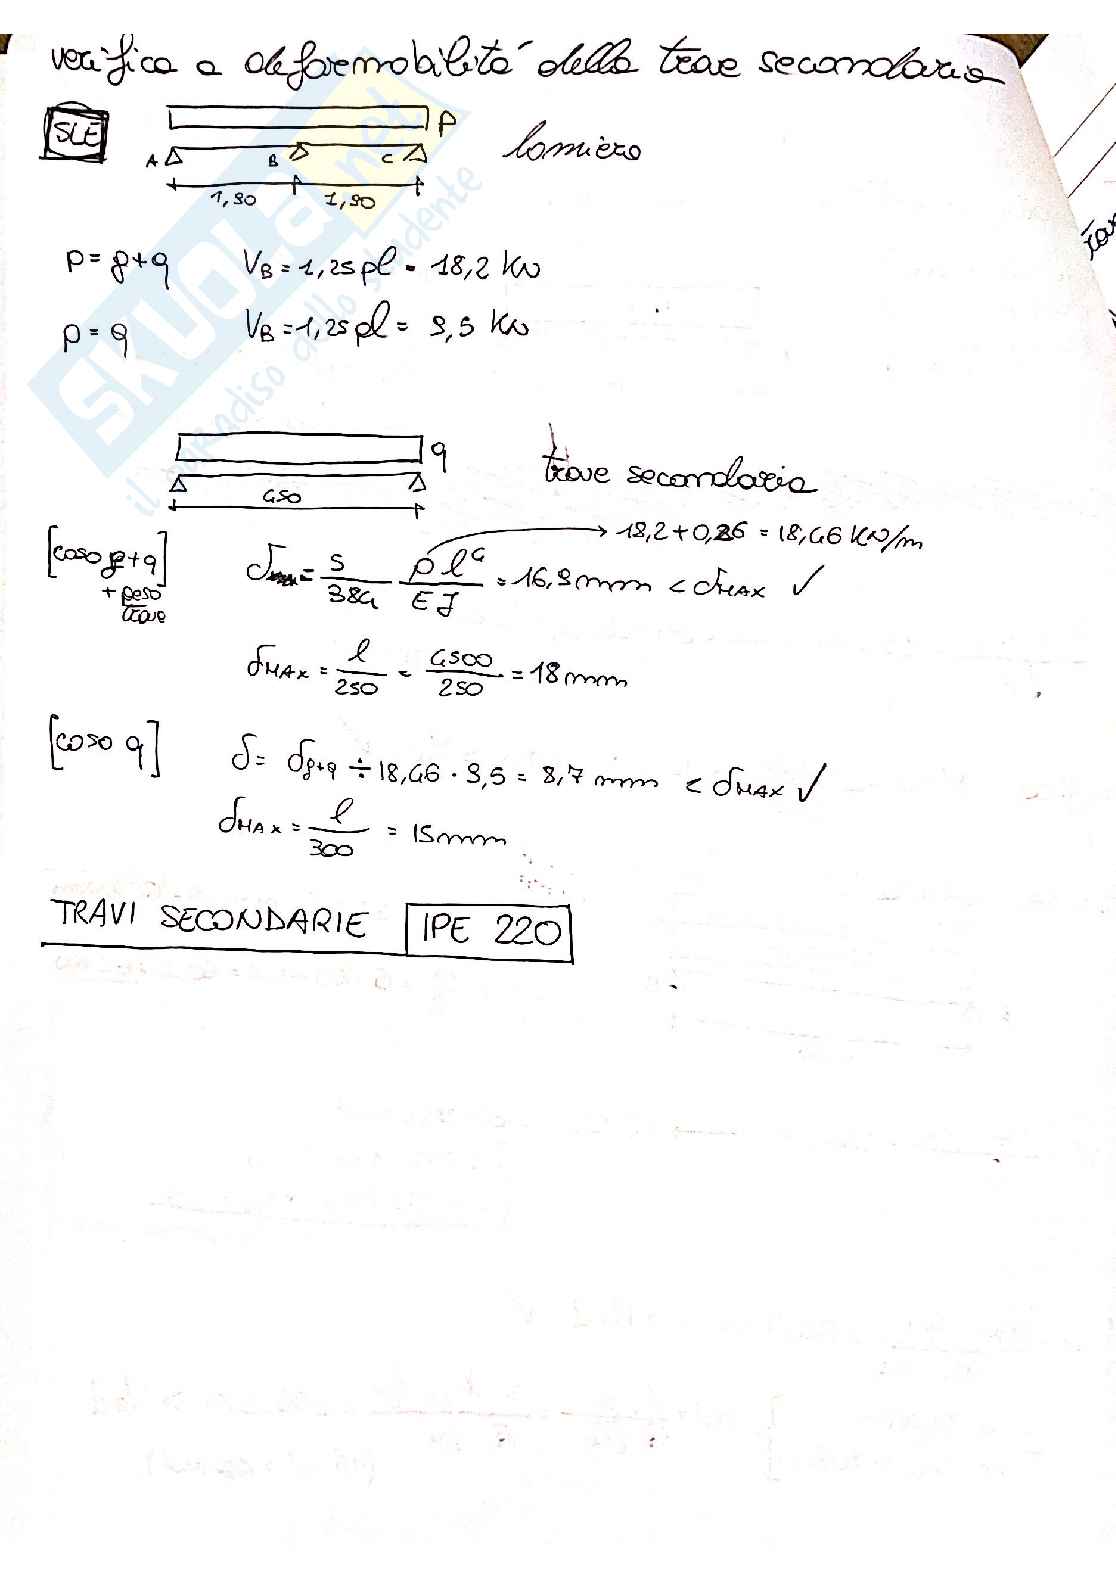 verifica a deformabilità della trave secondaria
SLE
P
A B C
lamiera
1,90 1,90
p = g+q VB = 1,25 pl = 18,2 KN
p = q VB = 1,25 pl = 9,5 KN
q
trave secondaria
450
[caso g+q] + peso trave
δ = 5/384 pl⁴/EJ = 16,9 mm < δMAX ✓
→ 18,2 + 0,26 = 18,46 KN/m
δMAX = l/250 = 4500/250 = 18 mm
[caso q] δ = δg+q ÷ 18,46 · 9,5 = 8,7 mm < δMAX ✓
δMAX = l/300 = 15 mm
TRAVI SECONDARIE IPE 220
SKUOLA.net
il paradiso dello studente